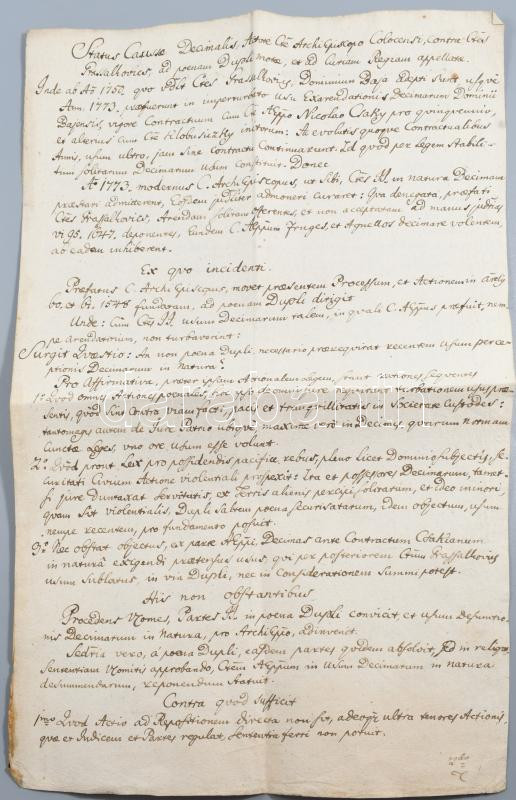 Status Causæ Decimalis, Actore Cte Archi Episcopo Colocensi, Contra Ctes
Grassalkovics, ad poenam Dupli motæ, et ad Curiam Regiam appellatæ.
Inde ab Ao 1752, quo Ctes Grassalkovics, Dominium Baja adepti sunt usqve
Ann. 1773, in usu Exarendationis Decimarum Dominii
Bajensis, vigore Contractuum Cum C. Aeppo Nicolao Csaky pro qvinqvennio,
et alterius Cum Klobusiczky initorum: Ac evolutis quoque Contractualibus
Annis, usum ultro, jam sine Contractu Continuarunt. Id quod per legem stabili-
tum solitarum Decimarum usum Constituit. Donec
Ao 1773, modernus C. Archi Episcopus, ut sibi, Ctes II. in natura Decimam
præstari admitterent, Eosdem admoneri curaret: Qva denegata, præfati
Ctes Grassalkovics, Arendam solitam offerentes, et non acceptatam ad manus
vi 95. 1647. deponentes, Eundem C. Aeppum fruges, et Agnellos decimare volentem,
ab eadem inhiberent.
Ex qvo incidenti.
Præfatus C. Archi Episcopus, movet præsentem Processum, et Actionem in Artlo
60. et 61. 1548 fundatam, ad poenam Dupli dirigit
Unde: Cum Ctes II. usum Decimarum talem, in quali C. Aeppus præfuit, nem-
pe arendatitium, non turbaverint:
Surgit Quæstio: An non poena Dupli, necessario præreqvirat recentem usum perce-
ptionis Decimarum in Natura?
Pro Affirmativa, præter ipsam Actionalem legem, stant rationes seqventes
1o Qvod omnis Actiones poenales, turbationem usus præ-
sentis, quod sint Contra viam facti, pacis et tranqvillitatis in Societate Custodes:
tantomagis autem de Jure Patrio ubiqve, maxime vero in Decimis, qvarum normam
Cunctæ leges, uno ore usum esse volunt.
2o Qvod prout Lex pro possidendis pacifice rebus, pleno licet Dominio subjectis, se-
curitati Civium Actione violentiali prospexit: Ita et possessores Decimarum, tamet-
si jure duntaxat servitutis, ex terris alienis percipi solitarum, et ideo minori,
quam sit violentialis, Dupli saltem poena securisatarum, idem objectum, usum
nempe recentem, pro fundamento posuit.
3o Nec obstat objectus, ex parte Aeppi, Decimas ante Contractum Csakianum
in natura exigendi præteritus usus, qvi per posteriorem Ctum Grassalkovics
usum sublatus, in via Dupli, nec in Considerationem Summi potest.
His non obstantibus
Procedens Vomes, Partes II. in poena Dupli convicit, et usum desumptio-
nis Decimarum in Natura, pro Archi Eppo, adinvenit.
Sedria vero, a poena Dupli, easdem partes quidem absolvit, sed in reliquo,
Sententiam Vomitis approbando, Ctem Aeppum in usum Decimarum in natura
desummendarum, reponendum statuit.
Contra quod sufficit
1mo Qvod Actio ad Repositionem directa non sit, adeoqe ultra tenores Actionis,
quæ et Iudicem et Partes regulat, sententia ferri non potuit.